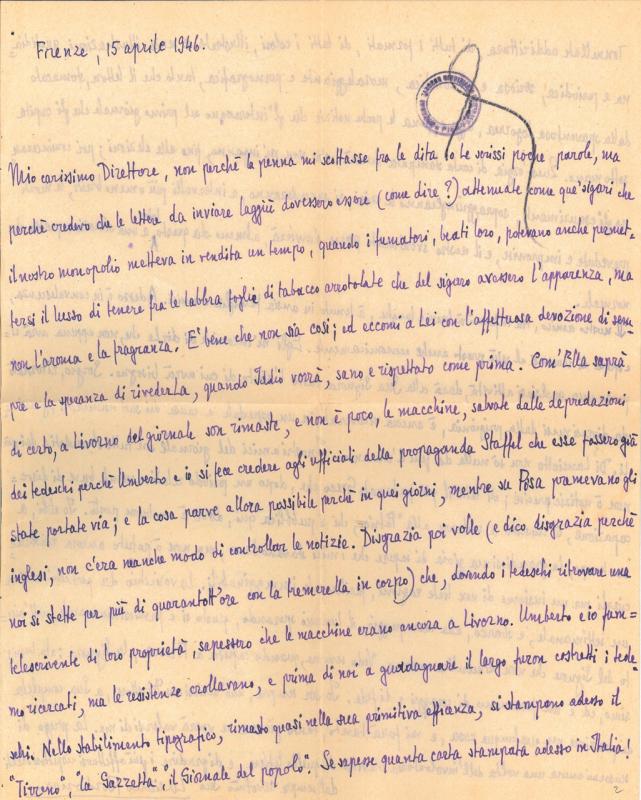 Firenze, 15 aprile 1946.
Mio carissimo Direttore, non perchè la penna mi scottasse fra le dita io Le scrissi poche parole, ma
perchè credevo che le lettere da inviare laggiù dovessero essere (come dire?) attenuate come que' sigari che
il nostro monopolio metteva in vendita un tempo, quando i fumatori, beati loro, potevano anche permet=
tersi il lusso di tenere fra le labbra foglie di tabacco arrotolate che del sigaro avessero l'apparenza, ma
non l'aroma e la fragranza. E' bene che non sia così; ed eccomi a Lei con l'affettuosa devozione di sem=
pre e la speranza di rivederLa, quando Iddio vorrà, sano e rispettato come prima. Com'Ella saprà
di certo, a Livorno del giornale son rimaste, e non è poco, le macchine, salvate dalle depredazioni
dei tedeschi perchè Umberto e io si fece credere agli ufficiali della propaganda Staffel che esse fossero già
state portate via; e la cosa parve allora possibile perchè in quei giorni, mentre su Pisa premevano gli
inglesi, non c'era neanche modo di controllar le notizie. Disgrazia poi volle (e dico disgrazia perchè
noi si stette per più di quarantott'ore con la tremerella in corpo) che, dovendo i tedeschi ritrovare una
telescrivente di loro proprietà, sapessero che le macchine erano ancora a Livorno. Umberto e io fum=
mo ricercati, ma le resistenze crollavano, e prima di noi a guadagnare il largo furon costretti i tede
schi. Nello stabilimento tipografico, rimasto quasi nella sua primitiva efficienza, si stampono adesso il
"Tirreno", "la Gazzetta", "il Giornale del popolo". Se sapesse quanta carta stampata adesso in Italia!
2